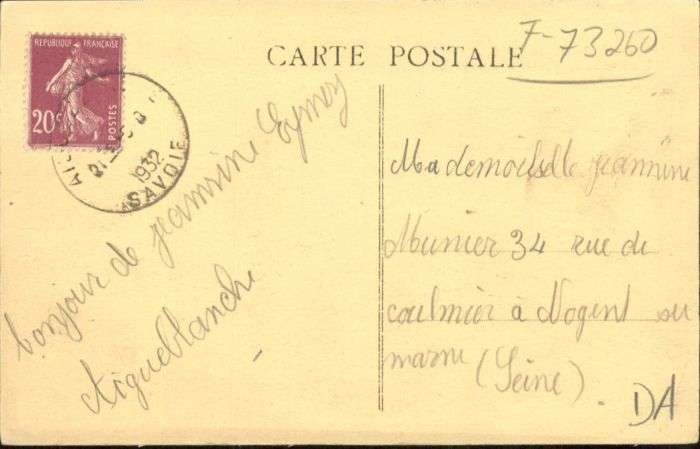 REPUBLIQUE FRANÇAISE
20c
POSTES
1932
SAVOIE
CARTE POSTALE
F-73260
bonjour de jeannine Eymoz
Aigueblanche
Mademoiselle jeannine
Munier 34 rue de
coulmier à Nogent sur
marne (Seine).
DA